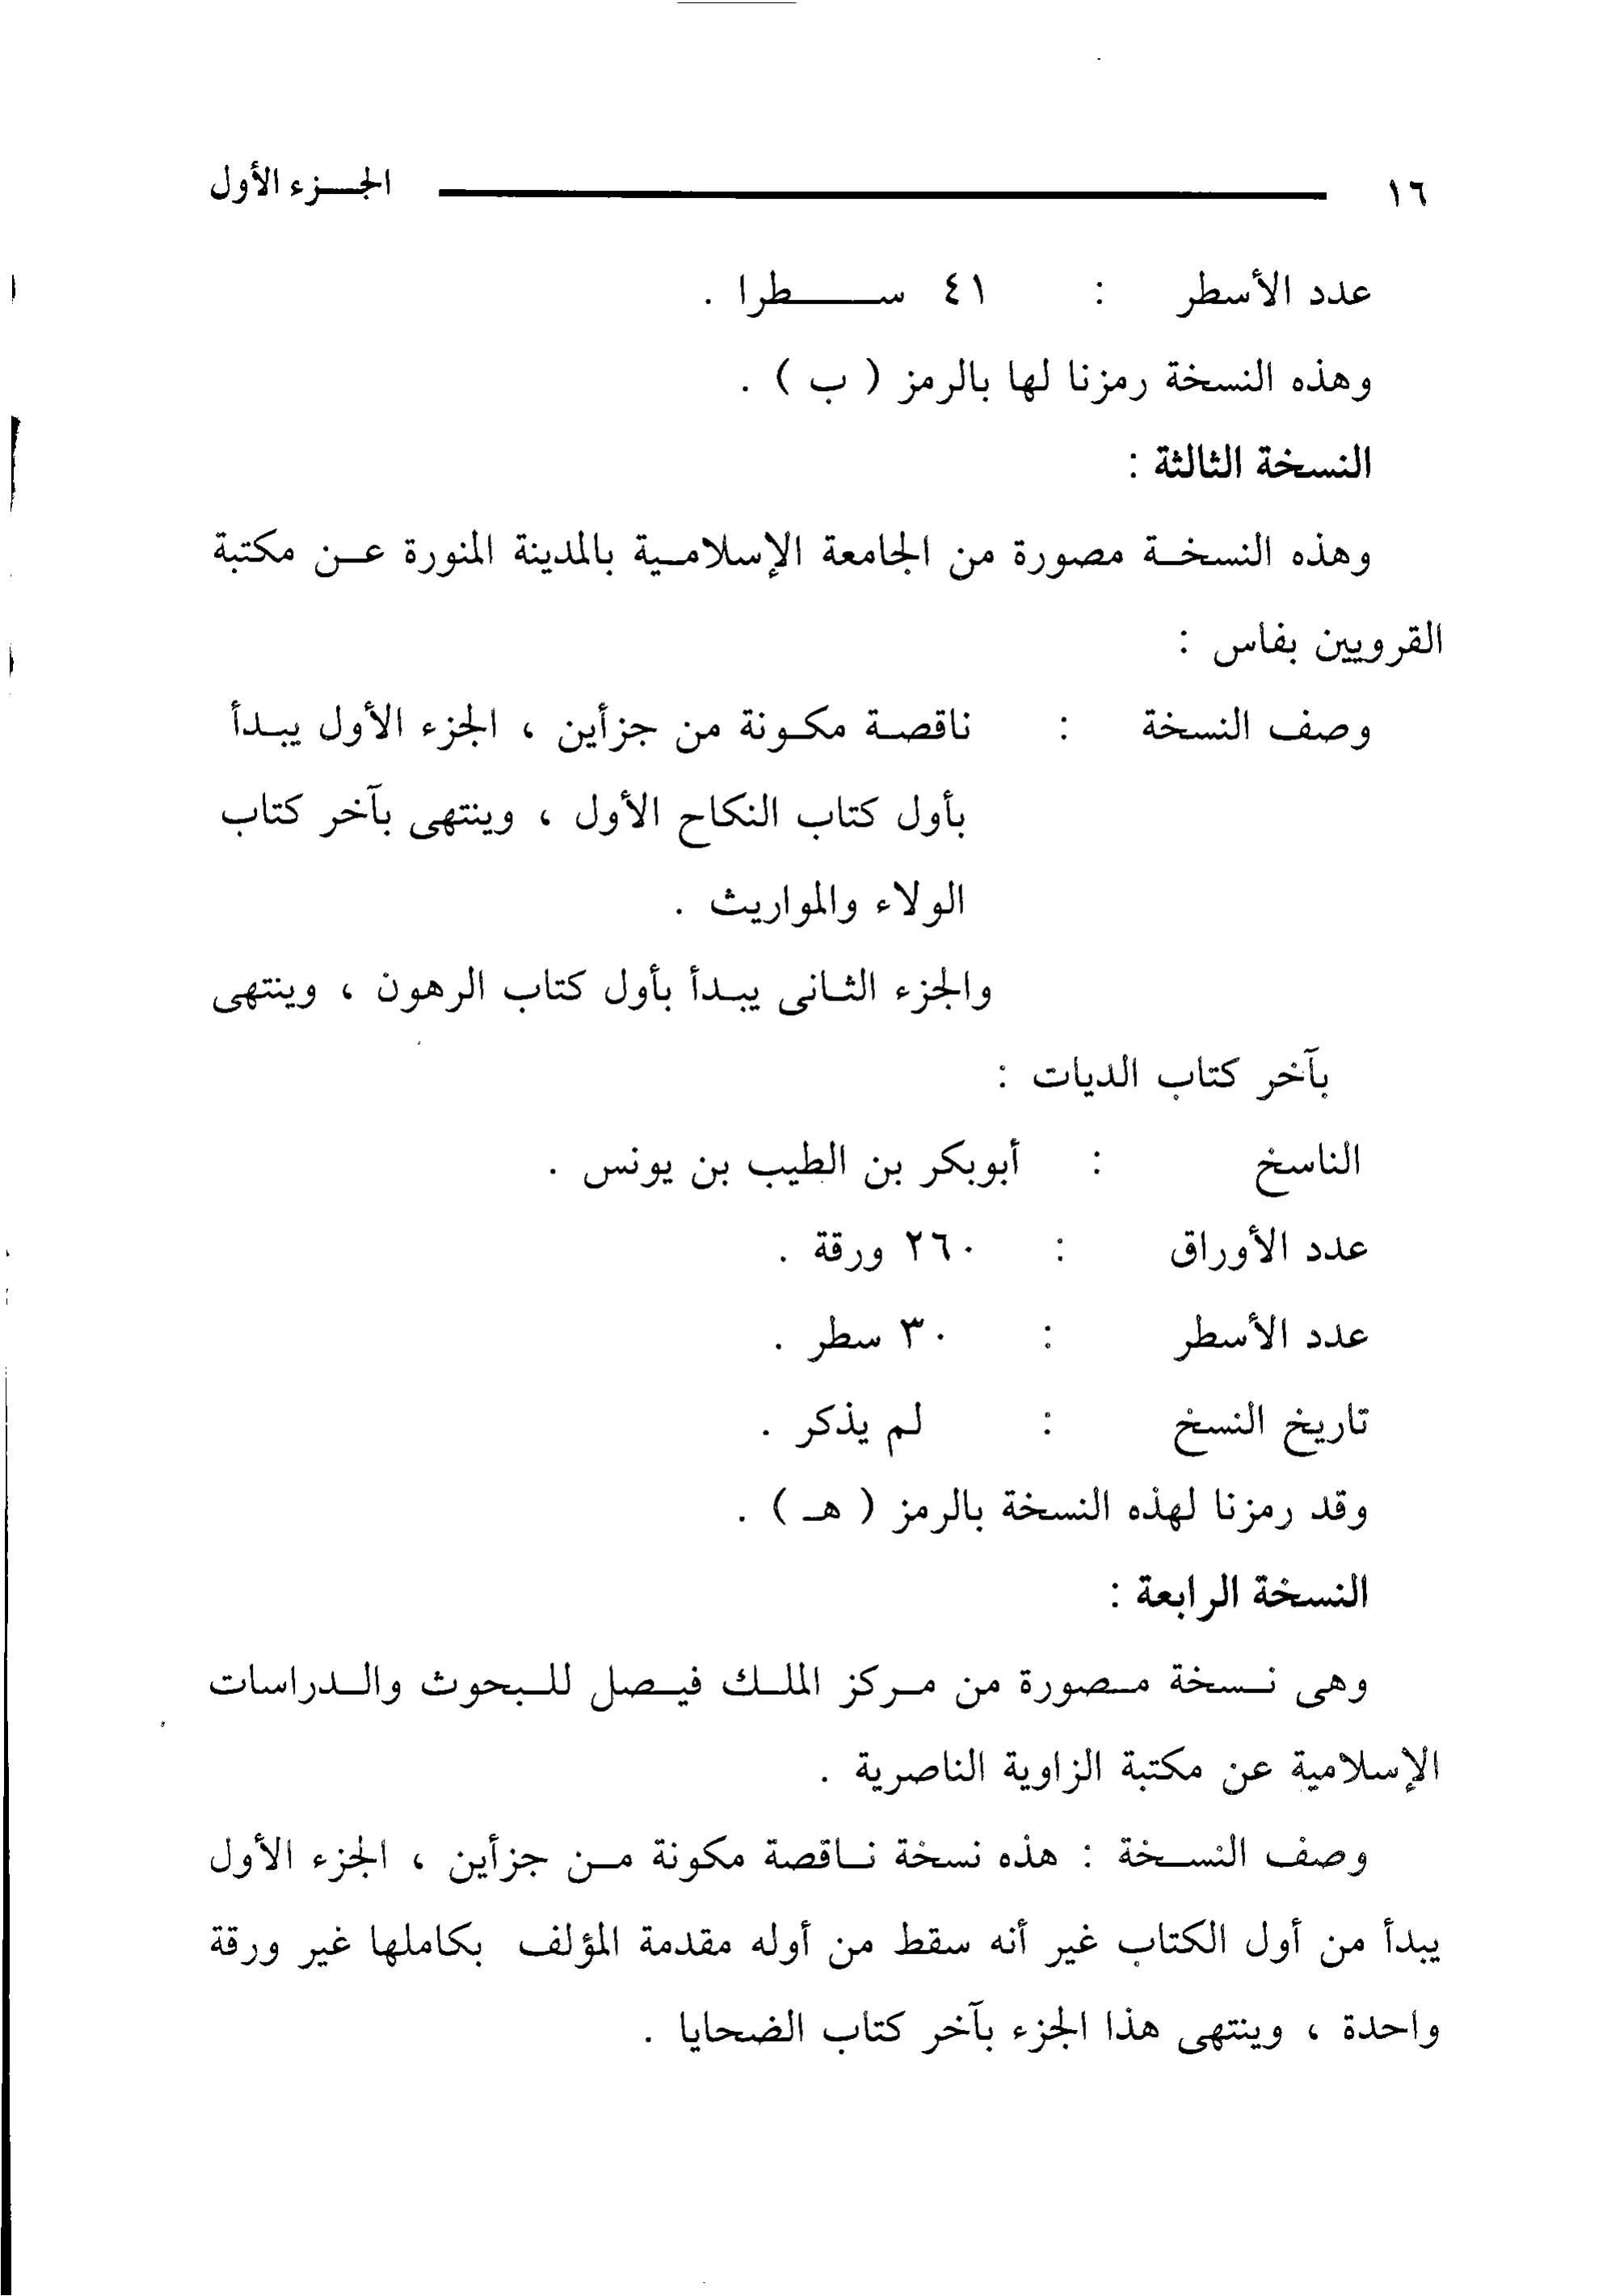 ١٦ الجزء الأول
عدد الأسطر : ٤١ سطرا .
وهذه النسخة رمزنا لها بالرمز ( ب ) .
النسخة الثالثة :
وهذه النسخة مصورة من الجامعة الإسلامية بالمدينة المنورة عن مكتبة
القرويين بفاس :
وصف النسخة : ناقصة مكونة من جزأين ، الجزء الأول يبدأ
بأول كتاب النكاح الأول ، وينتهى بآخر كتاب
الولاء والمواريث .
والجزء الثانى يبدأ بأول كتاب الرهون ، وينتهى
بآخر كتاب الديات :
الناسخ : أبوبكر بن الطيب بن يونس .
عدد الأوراق : ٢٦٠ ورقة .
عدد الأسطر : ٣٠ سطر .
تاريخ النسخ : لم يذكر .
وقد رمزنا لهذه النسخة بالرمز ( هـ ) .
النسخة الرابعة :
وهى نسخة مصورة من مركز الملك فيصل للبحوث والدراسات
الإسلامية عن مكتبة الزاوية الناصرية .
وصف النسخة : هذه نسخة ناقصة مكونة من جزأين ، الجزء الأول
يبدأ من أول الكتاب غير أنه سقط من أوله مقدمة المؤلف بكاملها غير ورقة
واحدة ، وينتهى هذا الجزء بآخر كتاب الضحايا .